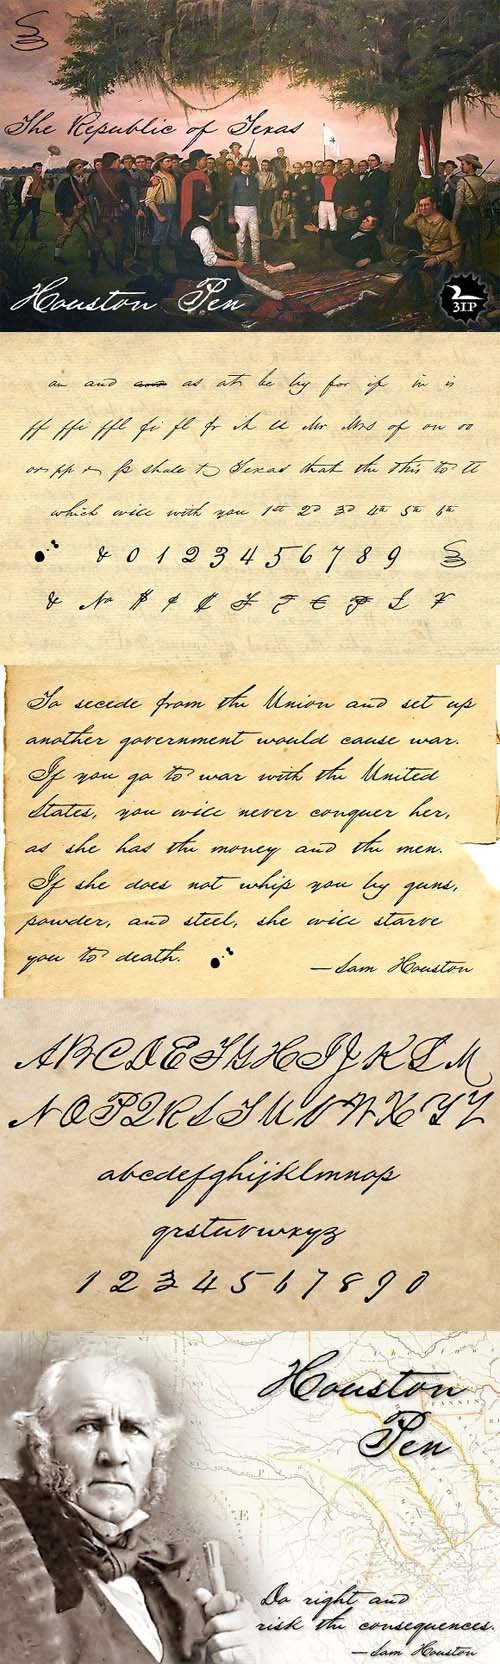 The Republic of Texas
Houston Pen
3IP
an and and as at be by for if in is
ff ffi ffl fi fl fr it ll Mr Mrs of on oo
or pp r ss shall t Texas that the this to tt
which will with you 1st 2d 3d 4th 5th 6th
& 0 1 2 3 4 5 6 7 8 9
& No $ ¢
To secede from the Union and set up
another government would cause war.
If you go to war with the United
States, you will never conquer her,
as she has the money and the men.
If she does not whip you by guns,
powder, and steel, she will starve
you to death.
—Sam Houston
ABCDEFGHIJKLM
NOPQRSTUVWXYZ
abcdefghijklmnop
qrstuvwxyz
1 2 3 4 5 6 7 8 9 0
Houston
Pen
Do right and
risk the consequences.
—Sam Houston